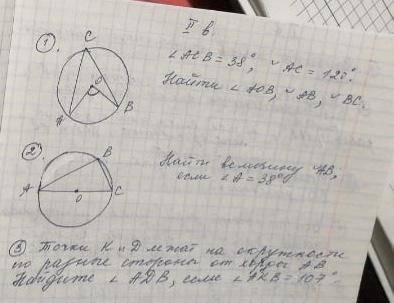 II в.
①.
C
O
A
B
∠ACB = 38°, ◡AC = 120°.
Найти ∠AOB, ◡AB, ◡BC.
②.
B
A
C
O
Найти величину ◡AB,
если ∠A = 38°
③ Точки K и D лежат на окружности
по разные стороны от хорды AB
Найдите ∠ADB, если ∠AKB = 107°